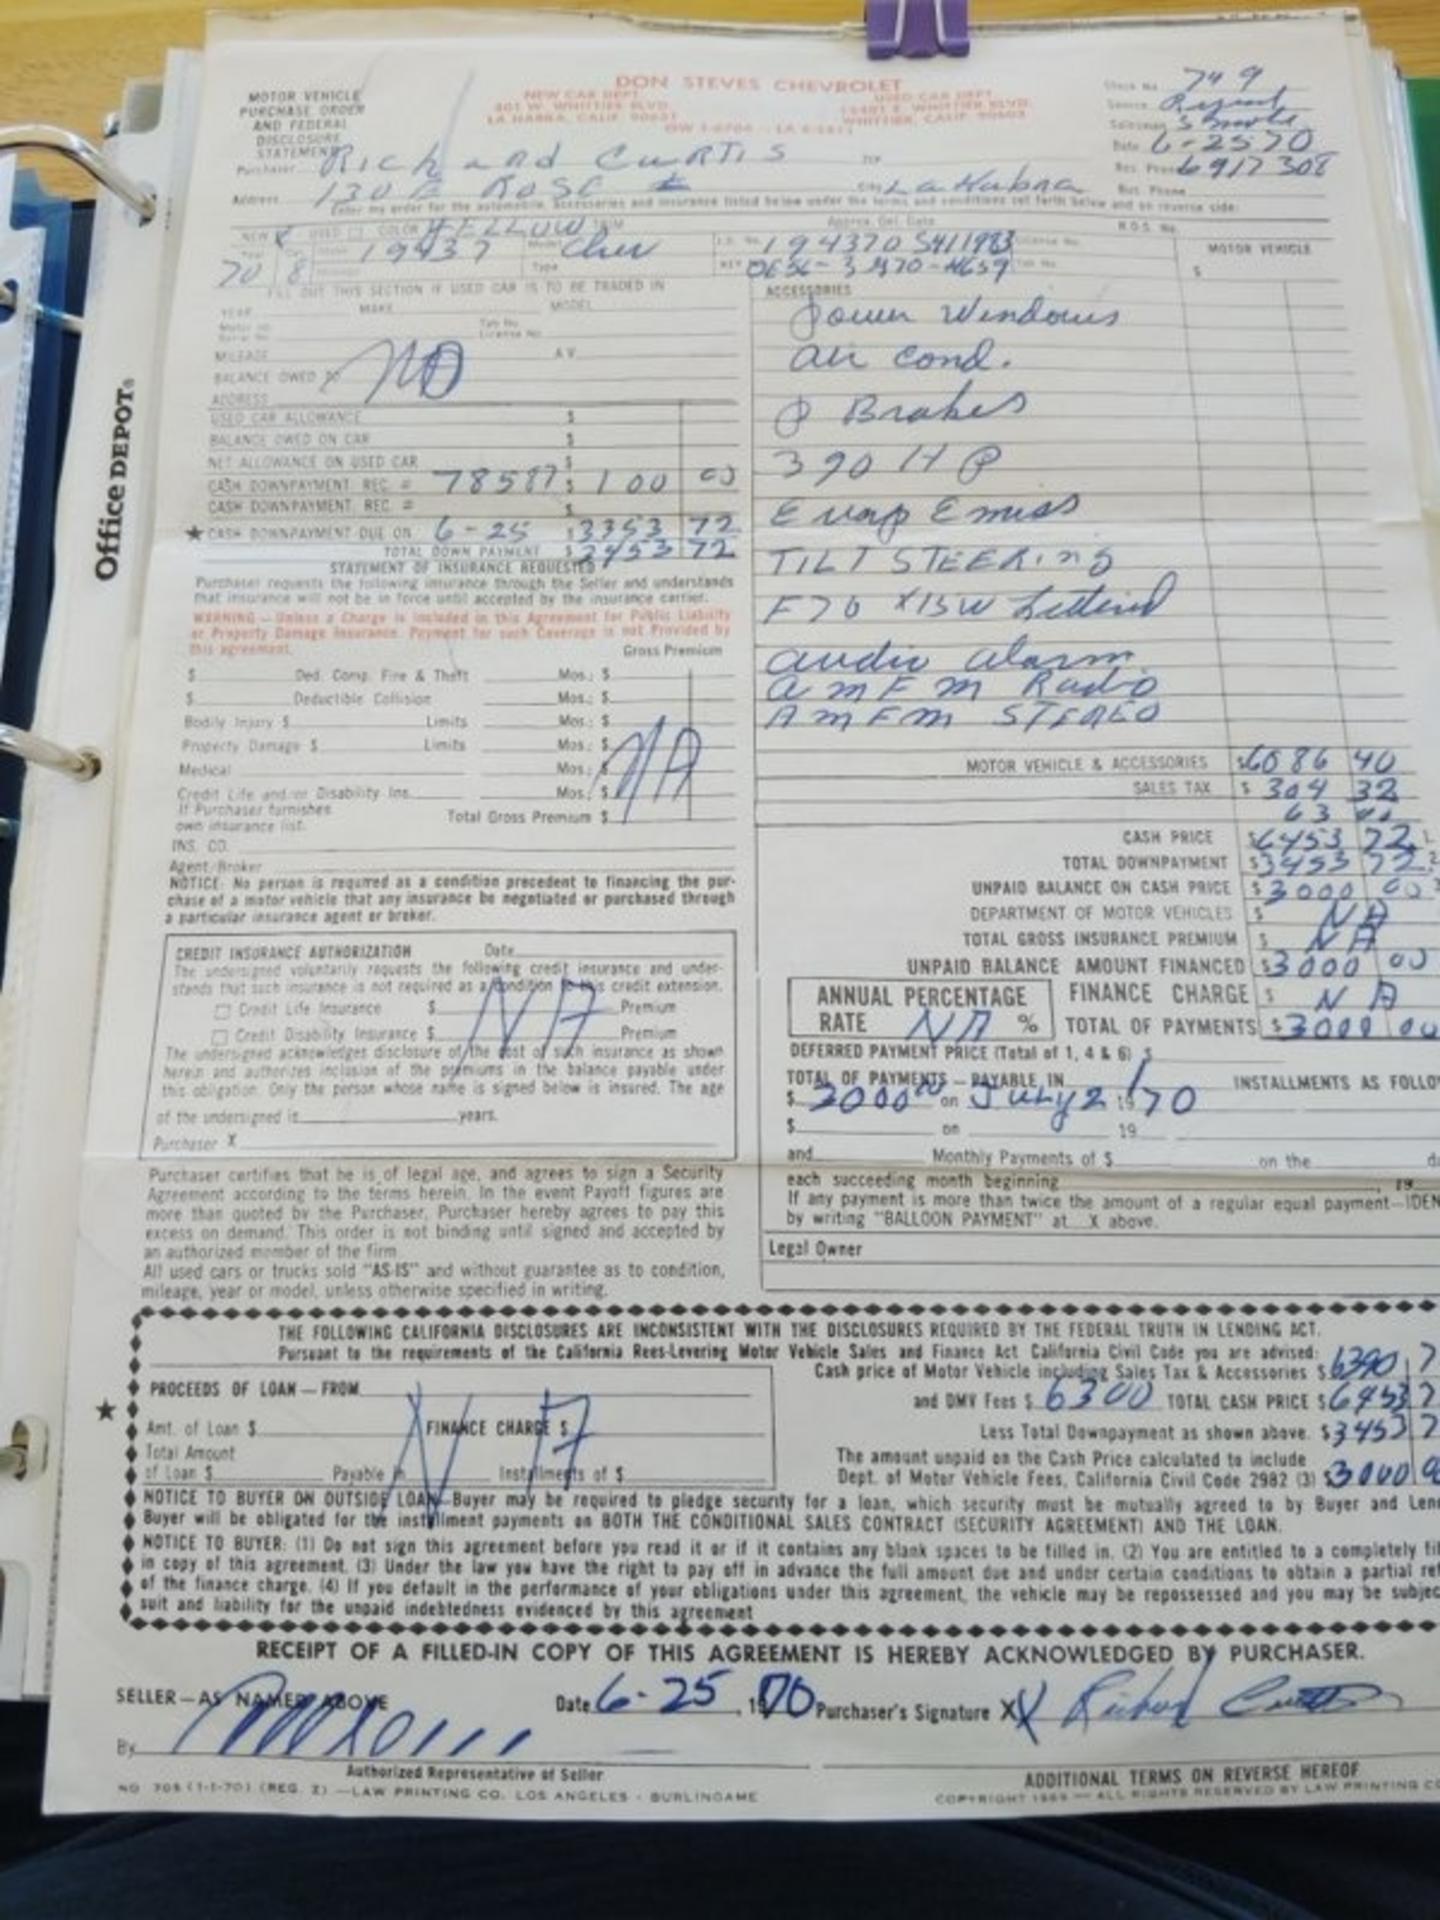 DON STEVES CHEVROLET
MOTOR VEHICLE
PURCHASE ORDER
AND FEDERAL
DISCLOSURE
STATEMENT
NEW CAR DEPT.
401 W. WHITTIER BLVD.
LA HABRA, CALIF. 90631
USED CAR DEPT.
WHITTIER, CALIF. 90603
Stock No. 749
Source
Salesman
Date 6-25 70
Res. Phone 6917308
Bus. Phone
Purchaser Richard CURTIS
Address 130 E ROSE City La Habra
Enter my order for the automobile, accessories and insurance listed below under the terms and conditions set forth below and on reverse side:
NEW USED COLOR YELLOW TRIM Approx. Del. Date R.O.S. No.
70 8 19437 Chev 194370S411983 License No.
Type KEY
MOTOR VEHICLE $
FILL OUT THIS SECTION IF USED CAR IS TO BE TRADED IN
YEAR MAKE MODEL
MILEAGE A.V.
BALANCE OWED TO NO
ADDRESS
USED CAR ALLOWANCE $
BALANCE OWED ON CAR $
NET ALLOWANCE ON USED CAR $
CASH DOWNPAYMENT, REC. # 78587 $ 100 00
CASH DOWNPAYMENT, REC. # $
★ CASH DOWNPAYMENT DUE ON 6-25 $3353 72
TOTAL DOWN PAYMENT $ 3453 72
STATEMENT OF INSURANCE REQUESTED
Purchaser requests the following insurance through the Seller and understands
that insurance will not be in force until accepted by the insurance carrier.
WARNING — Unless a Charge is included in this Agreement for Public Liability
or Property Damage Insurance, Payment for such Coverage is not Provided by
this agreement.
Gross Premium
$ Ded. Comp. Fire & Theft Mos.; $
$ Deductible Collision Mos.; $
Bodily Injury $ Limits Mos.; $
Property Damage $ Limits Mos.; $
Medical Mos.; $ NA
Credit Life and/or Disability Ins. Mos.; $
If Purchaser furnishes
own insurance list. Total Gross Premium $
INS. CO.
Agent/Broker
NOTICE: No person is required as a condition precedent to financing the pur-
chase of a motor vehicle that any insurance be negotiated or purchased through
a particular insurance agent or broker.
CREDIT INSURANCE AUTHORIZATION Date
The undersigned voluntarily requests the following credit insurance and under-
stands that such insurance is not required as a condition to this credit extension.
Credit Life Insurance $ Premium
Credit Disability Insurance $ Premium
NA
The undersigned acknowledges disclosure of the cost of such insurance as shown
herein and authorizes inclusion of the premiums in the balance payable under
this obligation. Only the person whose name is signed below is insured. The age
of the undersigned is years.
Purchaser X
Purchaser certifies that he is of legal age, and agrees to sign a Security
Agreement according to the terms herein. In the event Payoff figures are
more than quoted by the Purchaser, Purchaser hereby agrees to pay this
excess on demand. This order is not binding until signed and accepted by
an authorized member of the firm
All used cars or trucks sold "AS-IS" and without guarantee as to condition,
mileage, year or model, unless otherwise specified in writing.
ACCESSORIES
Power Windows
Air Cond.
P Brakes
390 H P
Evap Emiss
TILT STEERING
F70 X15 W Lettered
Audio Alarm
AM FM Radio
AM FM STEREO
MOTOR VEHICLE & ACCESSORIES $6086 40
SALES TAX $ 304 32
63 00
CASH PRICE $6453 72
TOTAL DOWNPAYMENT $3453 72
UNPAID BALANCE ON CASH PRICE $3000 00
DEPARTMENT OF MOTOR VEHICLES $ NA
TOTAL GROSS INSURANCE PREMIUM $ NA
UNPAID BALANCE AMOUNT FINANCED $3000 00
ANNUAL PERCENTAGE
RATE NA %
FINANCE CHARGE $ NA
TOTAL OF PAYMENTS $3000 00
DEFERRED PAYMENT PRICE (Total of 1, 4 & 6) $
TOTAL OF PAYMENTS — PAYABLE IN 1 INSTALLMENTS AS FOLLO
$ 3000 00 on July 2 1970
$ on 19
and Monthly Payments of $ on the
each succeeding month beginning , 19
If any payment is more than twice the amount of a regular equal payment—IDEN
by writing "BALLOON PAYMENT" at X above.
Legal Owner
THE FOLLOWING CALIFORNIA DISCLOSURES ARE INCONSISTENT WITH THE DISCLOSURES REQUIRED BY THE FEDERAL TRUTH IN LENDING ACT.
Pursuant to the requirements of the California Rees-Levering Motor Vehicle Sales and Finance Act California Civil Code you are advised:
Cash price of Motor Vehicle including Sales Tax & Accessories $6390 7
and DMV Fees $ 6300 TOTAL CASH PRICE $6453 7
Less Total Downpayment as shown above. $3453 7
The amount unpaid on the Cash Price calculated to include
Dept. of Motor Vehicle Fees, California Civil Code 2982 (3) $3000 00
★
PROCEEDS OF LOAN — FROM
Amt. of Loan $ FINANCE CHARGE $
Total Amount
of Loan $ Payable in Installments of $
NA
NOTICE TO BUYER ON OUTSIDE LOAN—Buyer may be required to pledge security for a loan, which security must be mutually agreed to by Buyer and Len
Buyer will be obligated for the installment payments on BOTH THE CONDITIONAL SALES CONTRACT (SECURITY AGREEMENT) AND THE LOAN.
NOTICE TO BUYER: (1) Do not sign this agreement before you read it or if it contains any blank spaces to be filled in. (2) You are entitled to a completely fil
in copy of this agreement. (3) Under the law you have the right to pay off in advance the full amount due and under certain conditions to obtain a partial ref
of the finance charge. (4) If you default in the performance of your obligations under this agreement, the vehicle may be repossessed and you may be subjec
suit and liability for the unpaid indebtedness evidenced by this agreement
RECEIPT OF A FILLED-IN COPY OF THIS AGREEMENT IS HEREBY ACKNOWLEDGED BY PURCHASER.
SELLER—AS NAMED ABOVE Date 6-25, 1970 Purchaser's Signature X Richard Curtis
By
Authorized Representative of Seller
ADDITIONAL TERMS ON REVERSE HEREOF
NO. 705 (1-1-70) (REG. Z) —LAW PRINTING CO. LOS ANGELES - BURLINGAME
COPYRIGHT 1969 — ALL RIGHTS RESERVED BY LAW PRINTING CO
Office DEPOT